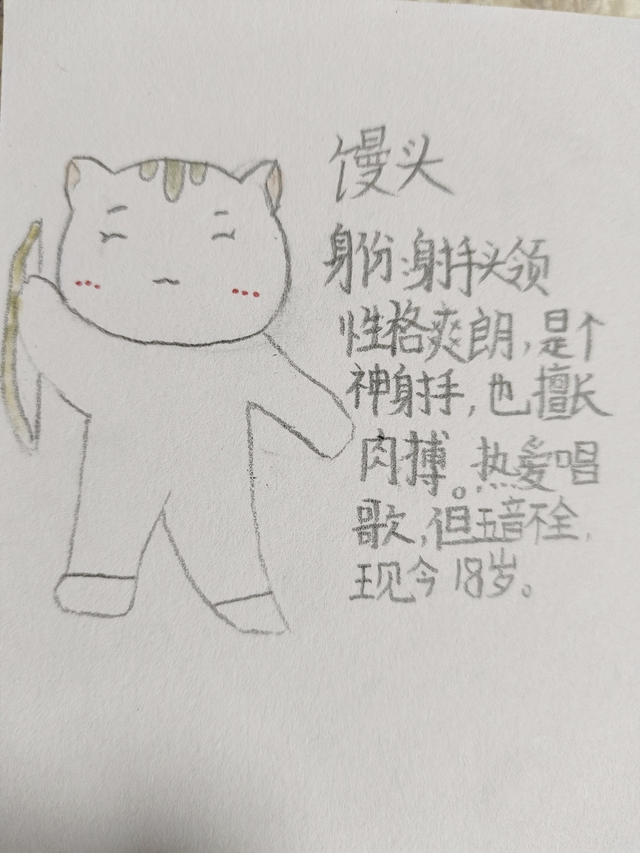 馒头
身份:射手头领
性格爽朗,是个
神射手,也擅长
肉搏。热爱唱
歌,但五音不全,
现今18岁。